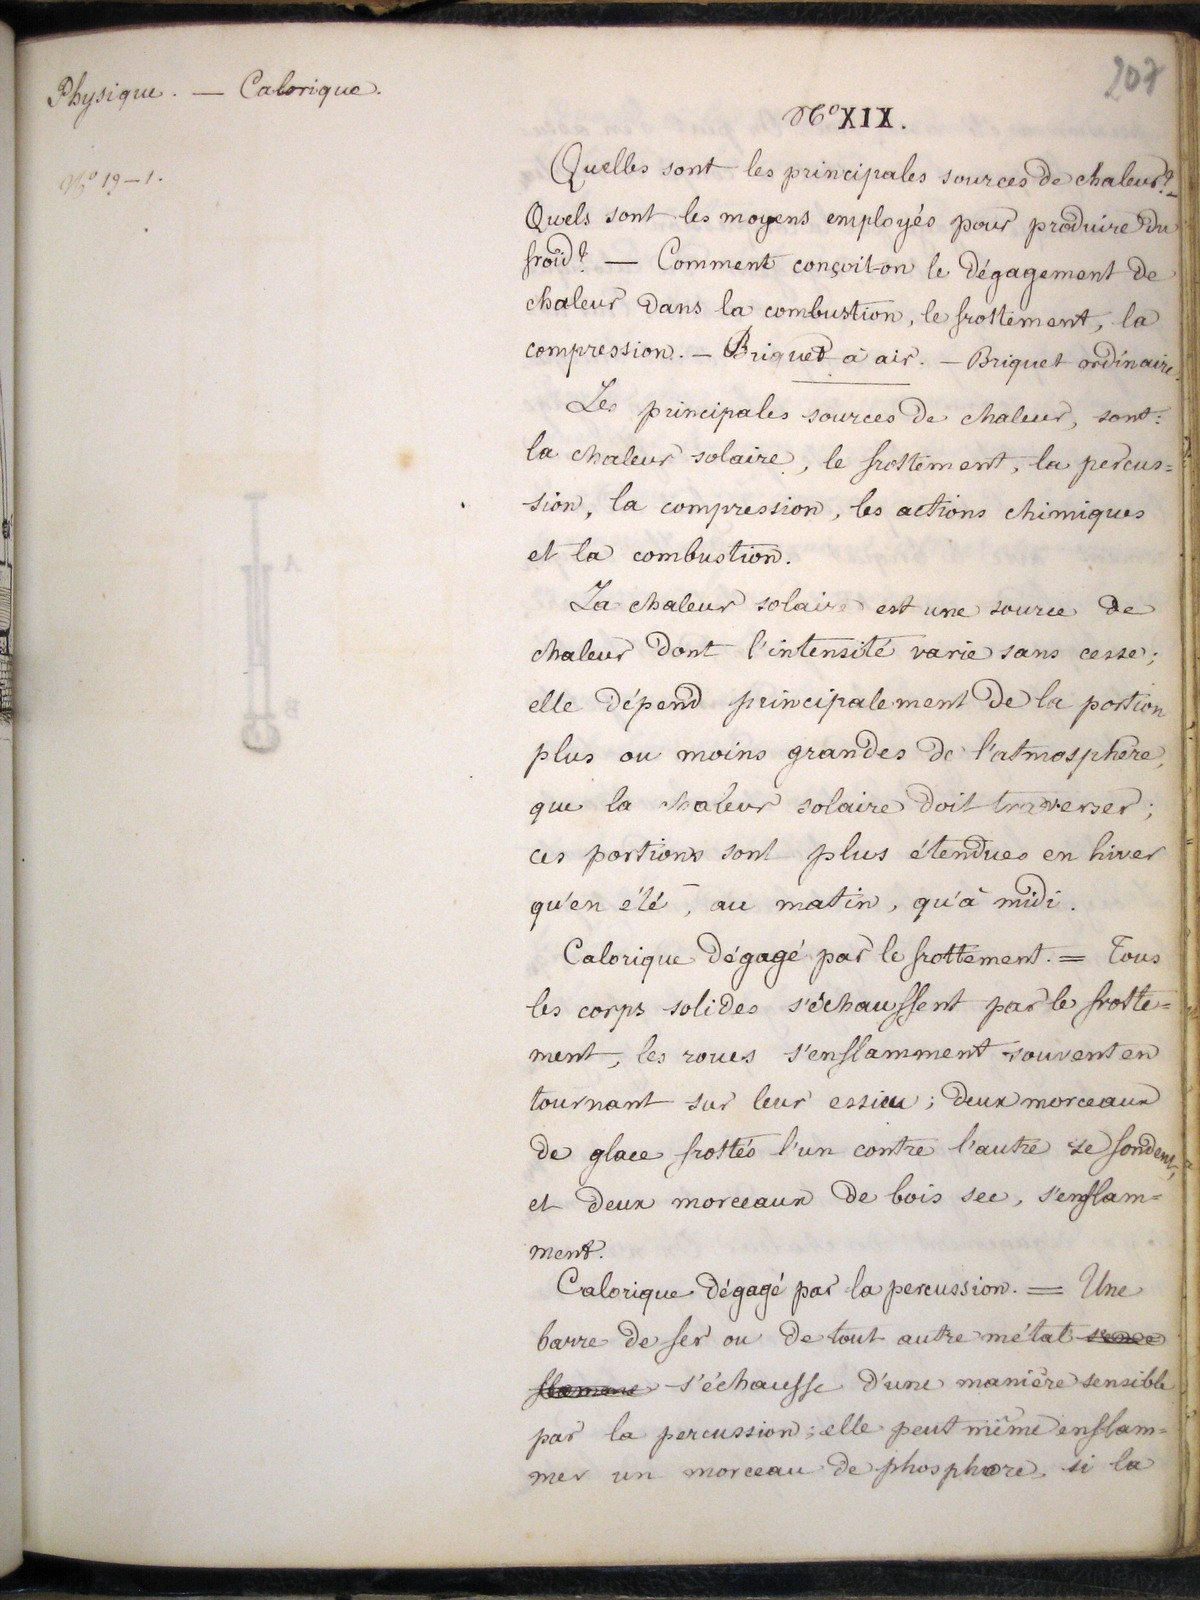 Physique. — Calorique.
207
N° XIX.
N° 19-1.
Quelles sont les principales sources de chaleur? -
Quels sont les moyens employés pour produire du
froid? — Comment conçoit-on le dégagement de
chaleur dans la combustion, le frottement, la
compression. - Briquet à air. - Briquet ordinaire.
Les principales sources de chaleur, sont:
la chaleur solaire, le frottement, la percus=
sion, la compression, les actions chimiques
et la combustion.
La chaleur solaire est une source de
chaleur dont l'intensité varie sans cesse;
elle dépend principalement de la portion
plus ou moins grandes de l'atmosphère,
que la chaleur solaire doit traverser;
ces portions sont plus étendues en hiver
qu'en été, au matin, qu'à midi.
Calorique dégagé par le frottement. = Tous
les corps solides s'échauffent par le frotte=
ment, les roues s'enflamment souvent en
tournant sur leur essieu; deux morceaux
de glace frottés l'un contre l'autre se fondent,
et deux morceaux de bois sec, s'enflam=
ment.
Calorique dégagé par la percussion. = Une
barre de fer ou de tout autre métal
s'échauffe d'une manière sensible
par la percussion; elle peut même enflam=
mer un morceau de phosphore, si la
A
B